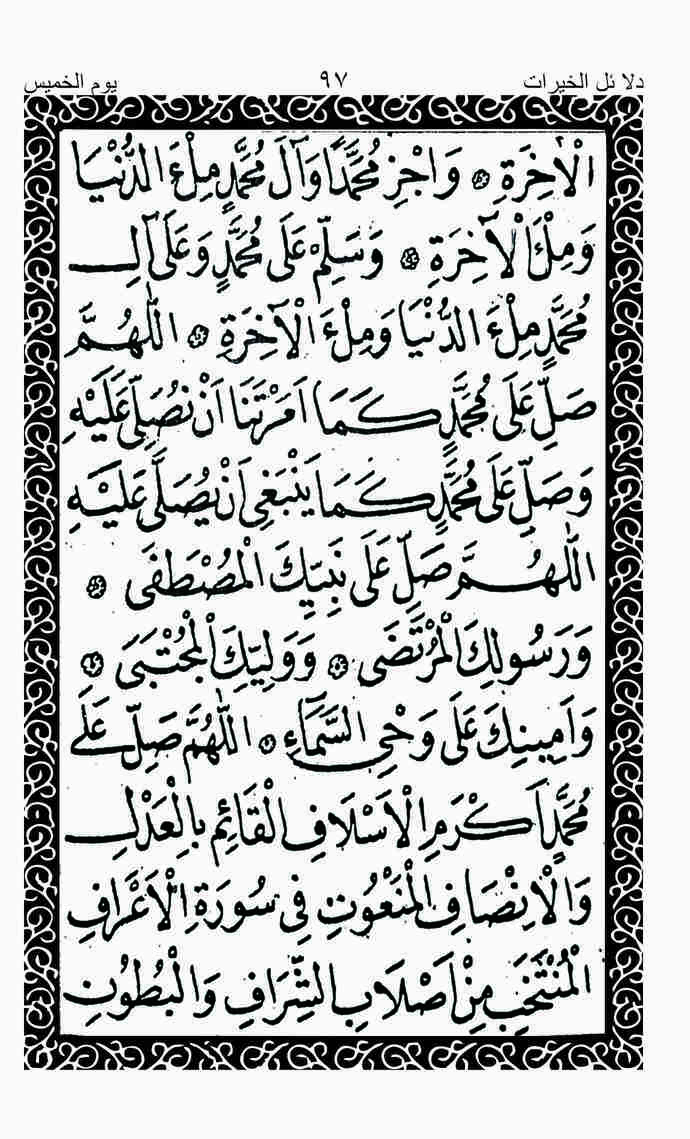 دلا ئل الخيرات ٩٧ يوم الخميس
الْاٰخِرَةِ ۞ وَاجْزِ مُحَمَّدًا وَآلَ مُحَمَّدٍ مِلْءَ الدُّنْيَا
وَمِلْءَ الْآخِرَةِ ۞ وَسَلِّمْ عَلَى مُحَمَّدٍ وَعَلَى آلِ
مُحَمَّدٍ مِلْءَ الدُّنْيَا وَمِلْءَ الْآخِرَةِ ۞ اللّٰهُمَّ
صَلِّ عَلَى مُحَمَّدٍ كَمَا اَمَرْتَنَا اَنْ نُصَلِّيَ عَلَيْهِ
وَصَلِّ عَلَى مُحَمَّدٍ كَمَا يَنْبَغِي اَنْ يُصَلَّى عَلَيْهِ
اللّٰهُمَّ صَلِّ عَلَى نَبِيِّكَ الْمُصْطَفَى ۞
وَرَسُولِكَ الْمُرْتَضَى ۞ وَوَلِيِّكَ الْمُجْتَبَى ۞
وَاَمِينِكَ عَلَى وَحْيِ السَّمَآءِ ۞ اللّٰهُمَّ صَلِّ عَلَى
مُحَمَّدٍ اَكْرَمِ الْاَسْلَافِ الْقَائِمِ بِالْعَدْلِ
وَالْاِنْصَافِ الْمَنْعُوتِ فِي سُورَةِ الْاَعْرَافِ
الْمُنْتَخَبِ مِنْ اَصْلَابِ الشِّرَافِ وَالْبُطُونِ